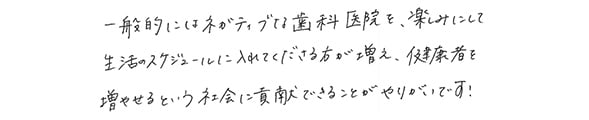 一般的にはネガティブな歯科医院を、楽しみにして
生活のスケジュールに入れてくださる方が増え、健康者を
増やせるという社会に貢献できることがやりがいです!